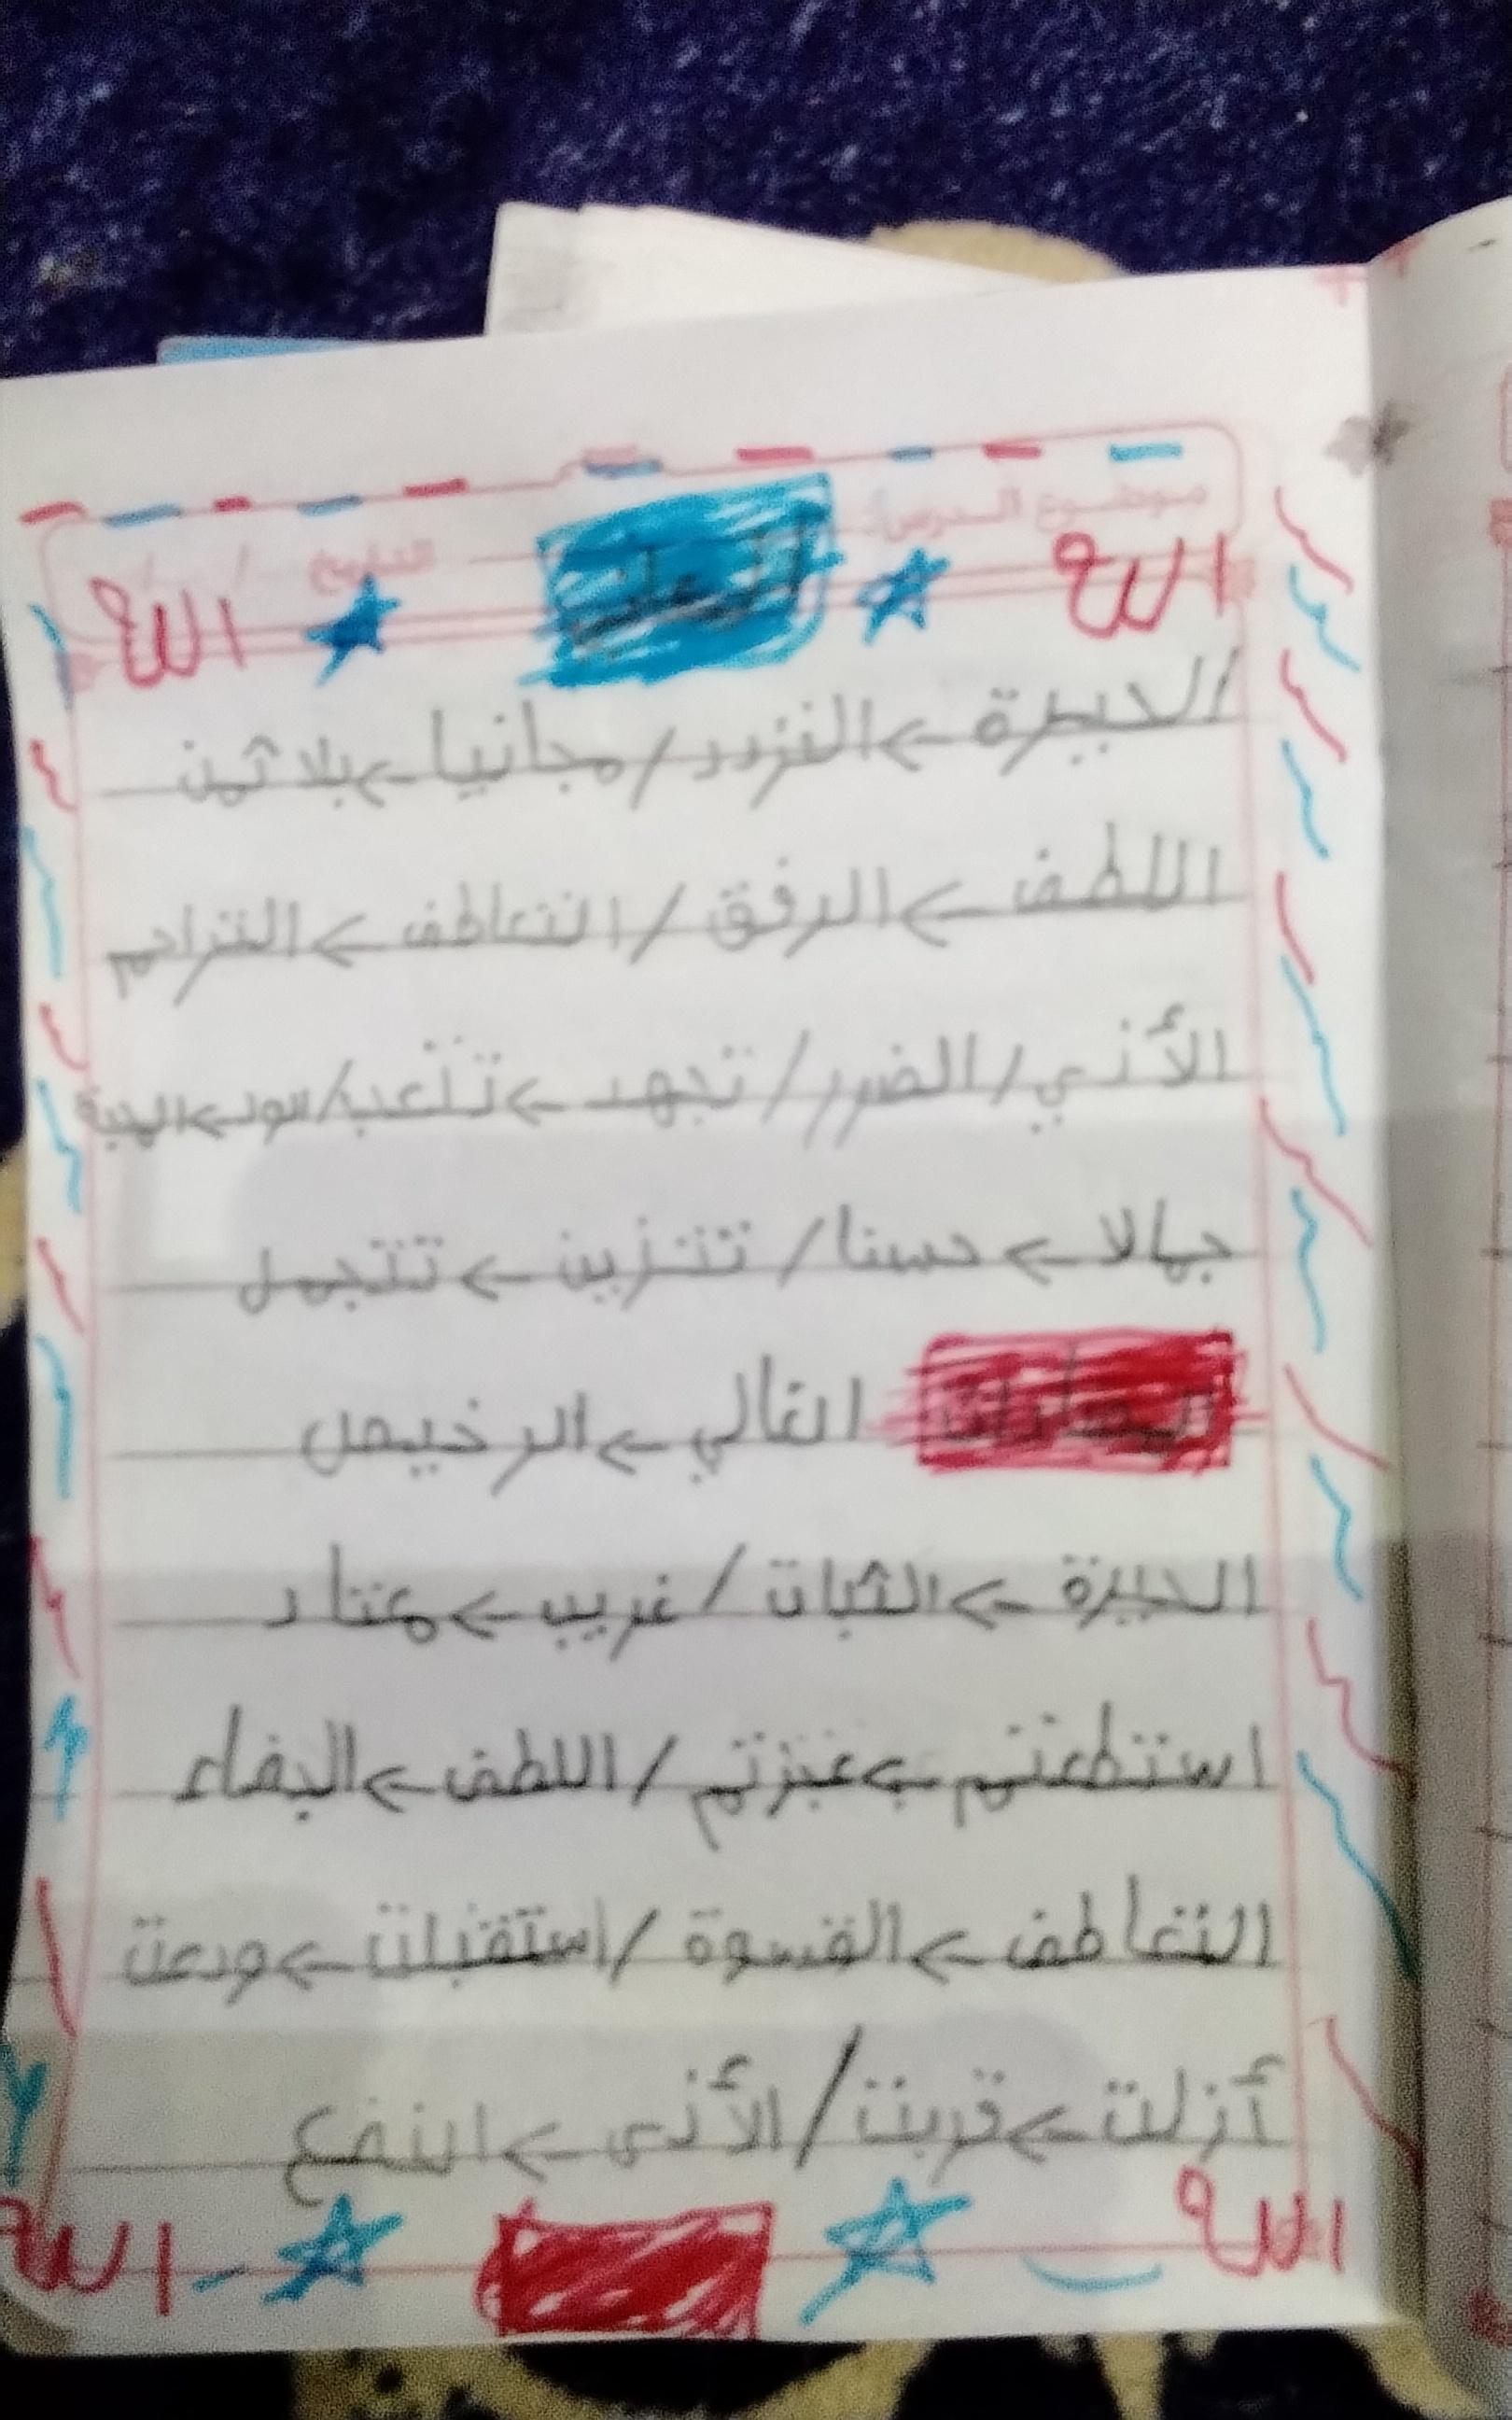 موضوع الدرس:
التاريخ / /
الله الله
الحيرة ← التردد / مجانيا ← بلا ثمن
اللطف ← الرفق / التعاطف ← التراحم
الأذي / الضرر / تجهد ← تتعب /
جمالا ← حسنا / تتزين ← تتجمل
المضادات الغالي ← الرخيص
الحيرة ← الثبات / غريب ← معتاد
استطعتم ← عجزتم / اللطف ← الجفاء
التعاطف ← القسوة / استقبلت ← ودعت
أزلت ← قربت / الأذى ← النفع
الله الله